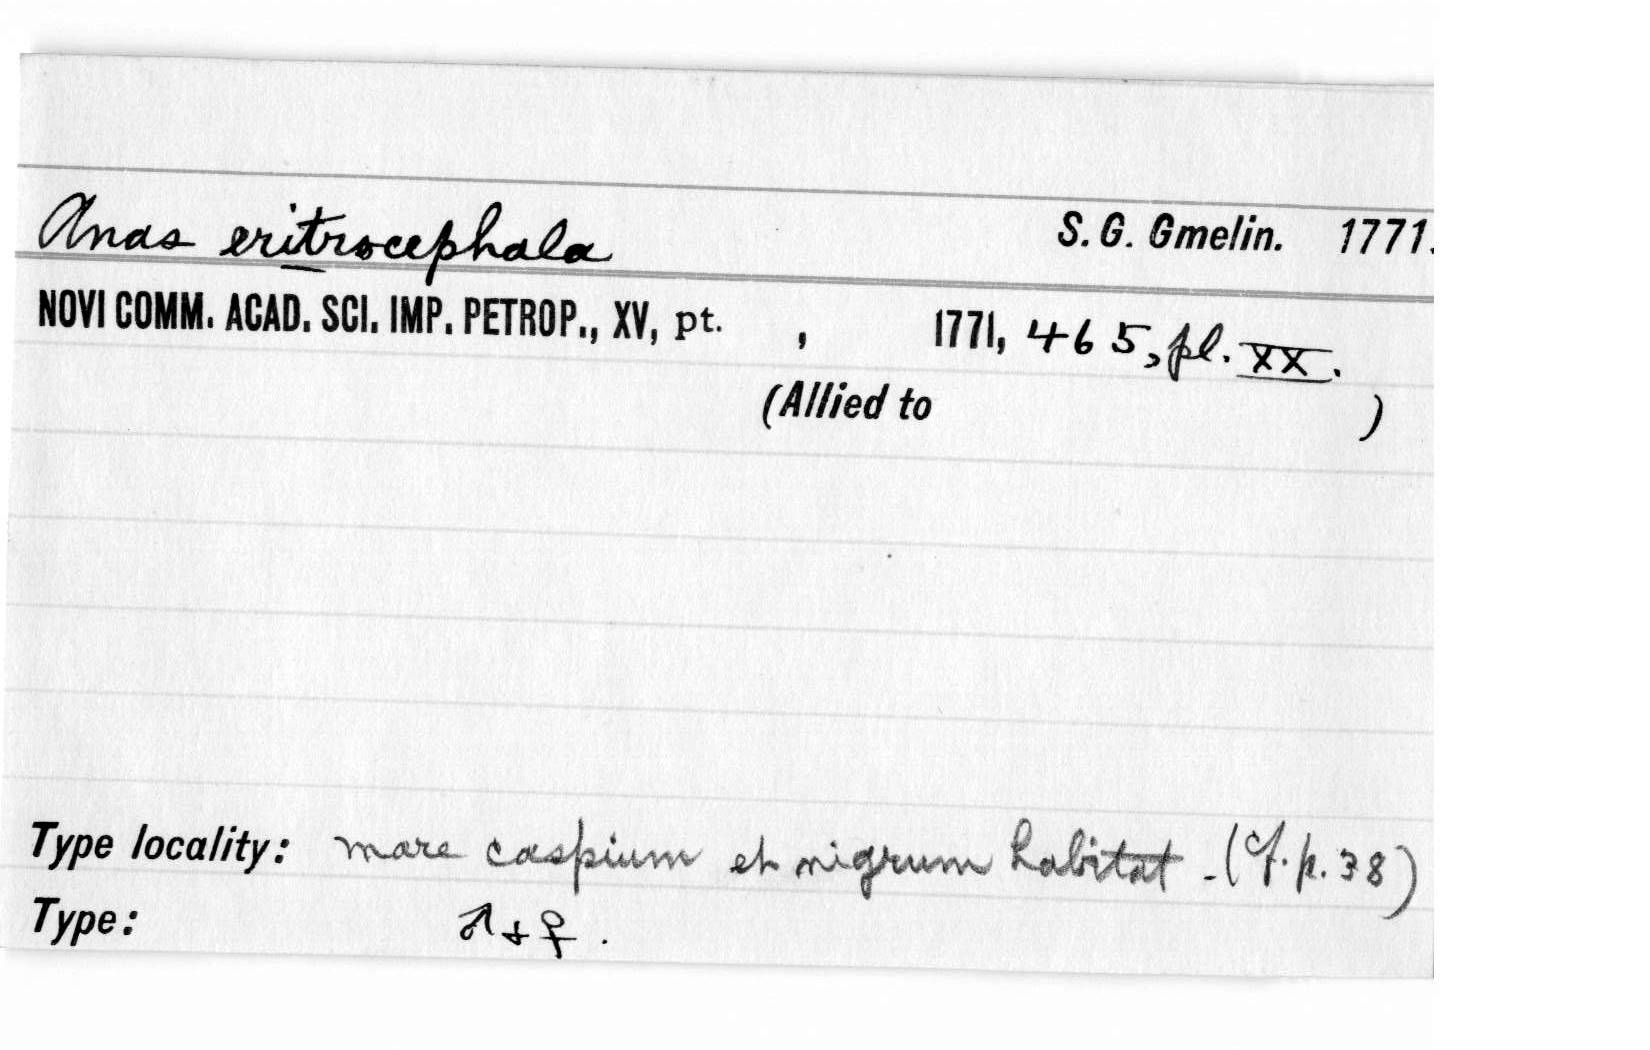 Anas eritrocephala S. G. Gmelin. 1771.
NOVI COMM. ACAD. SCI. IMP. PETROP., XV, pt. , 1771, 465, pl. XX.
(Allied to )
Type locality: mare caspium et nigrum habitat - (cf. p. 38)
Type: ♂ + ♀.